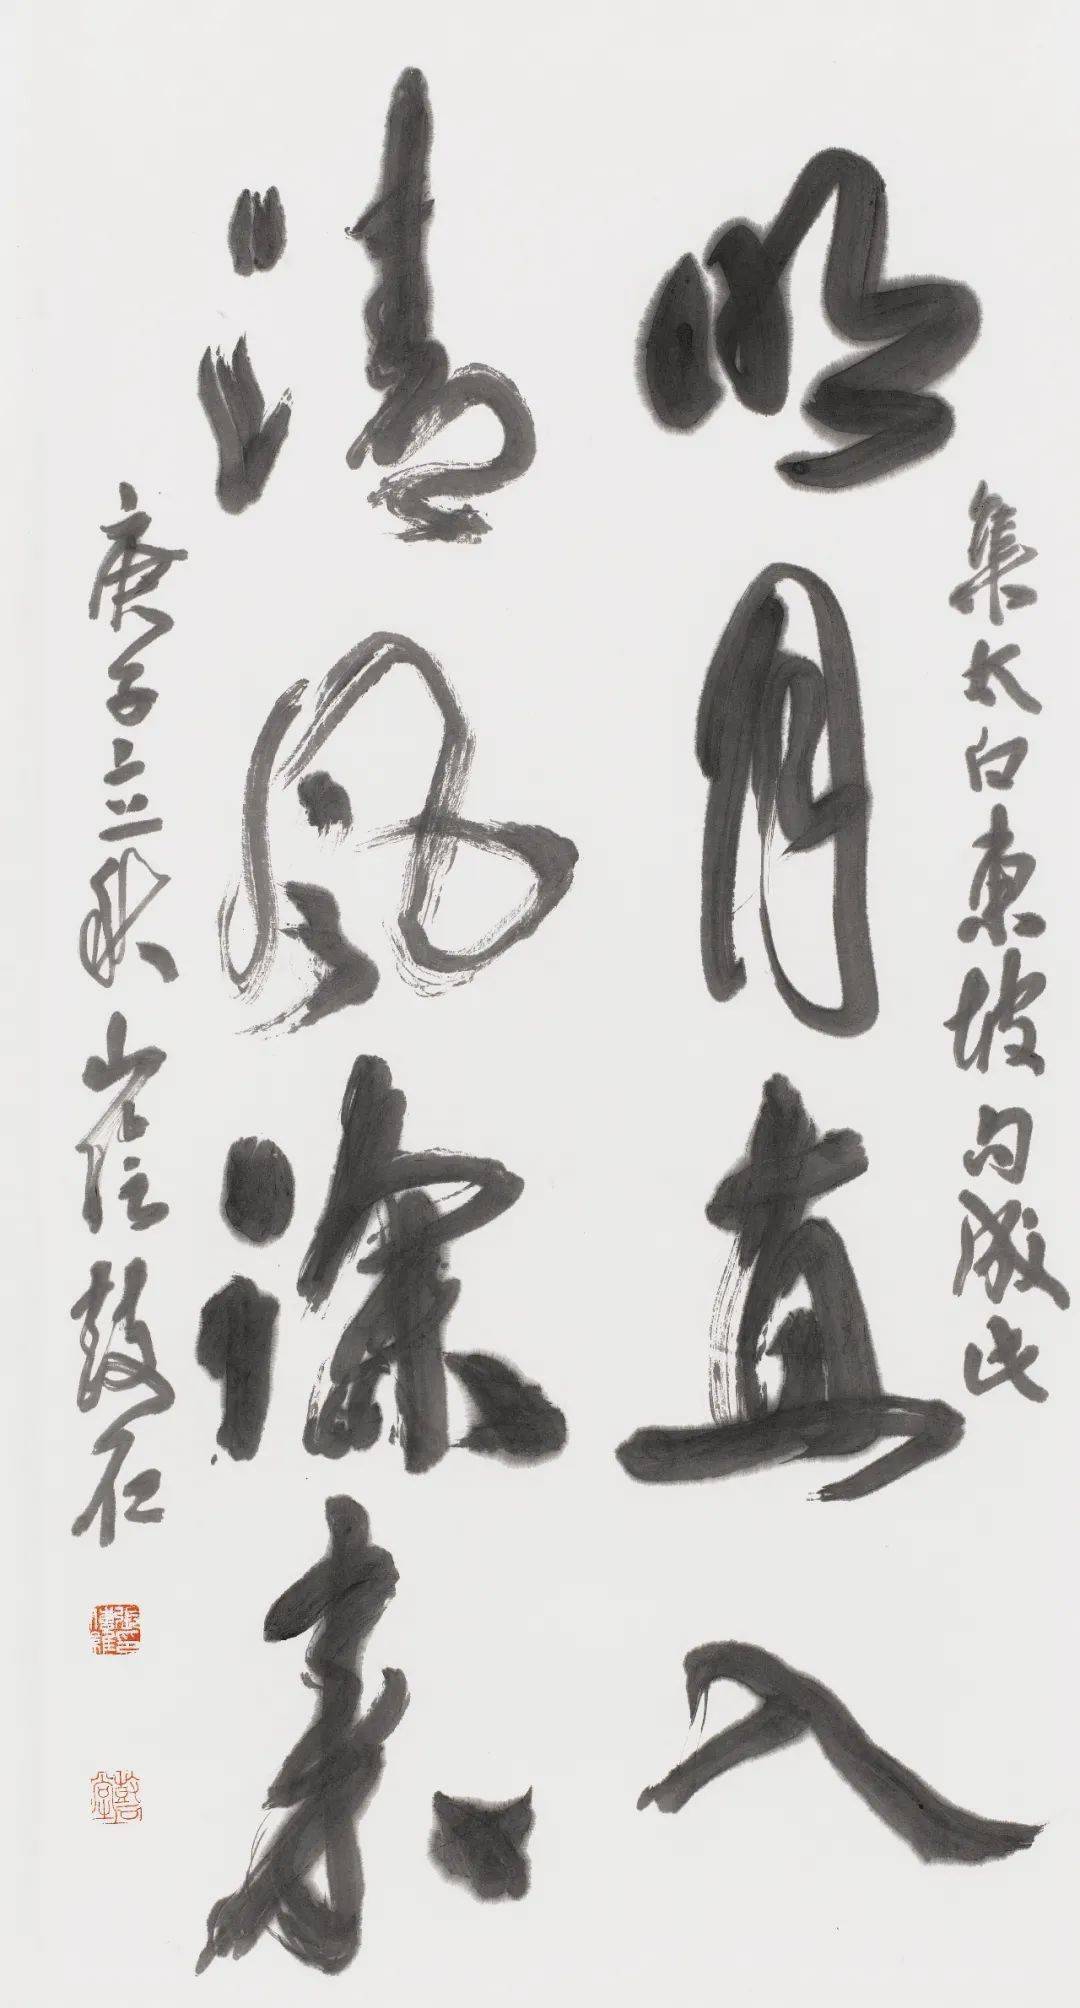 集太白東坡句成此
明月直入
清風徐來
庚子立秋山陰鼓石